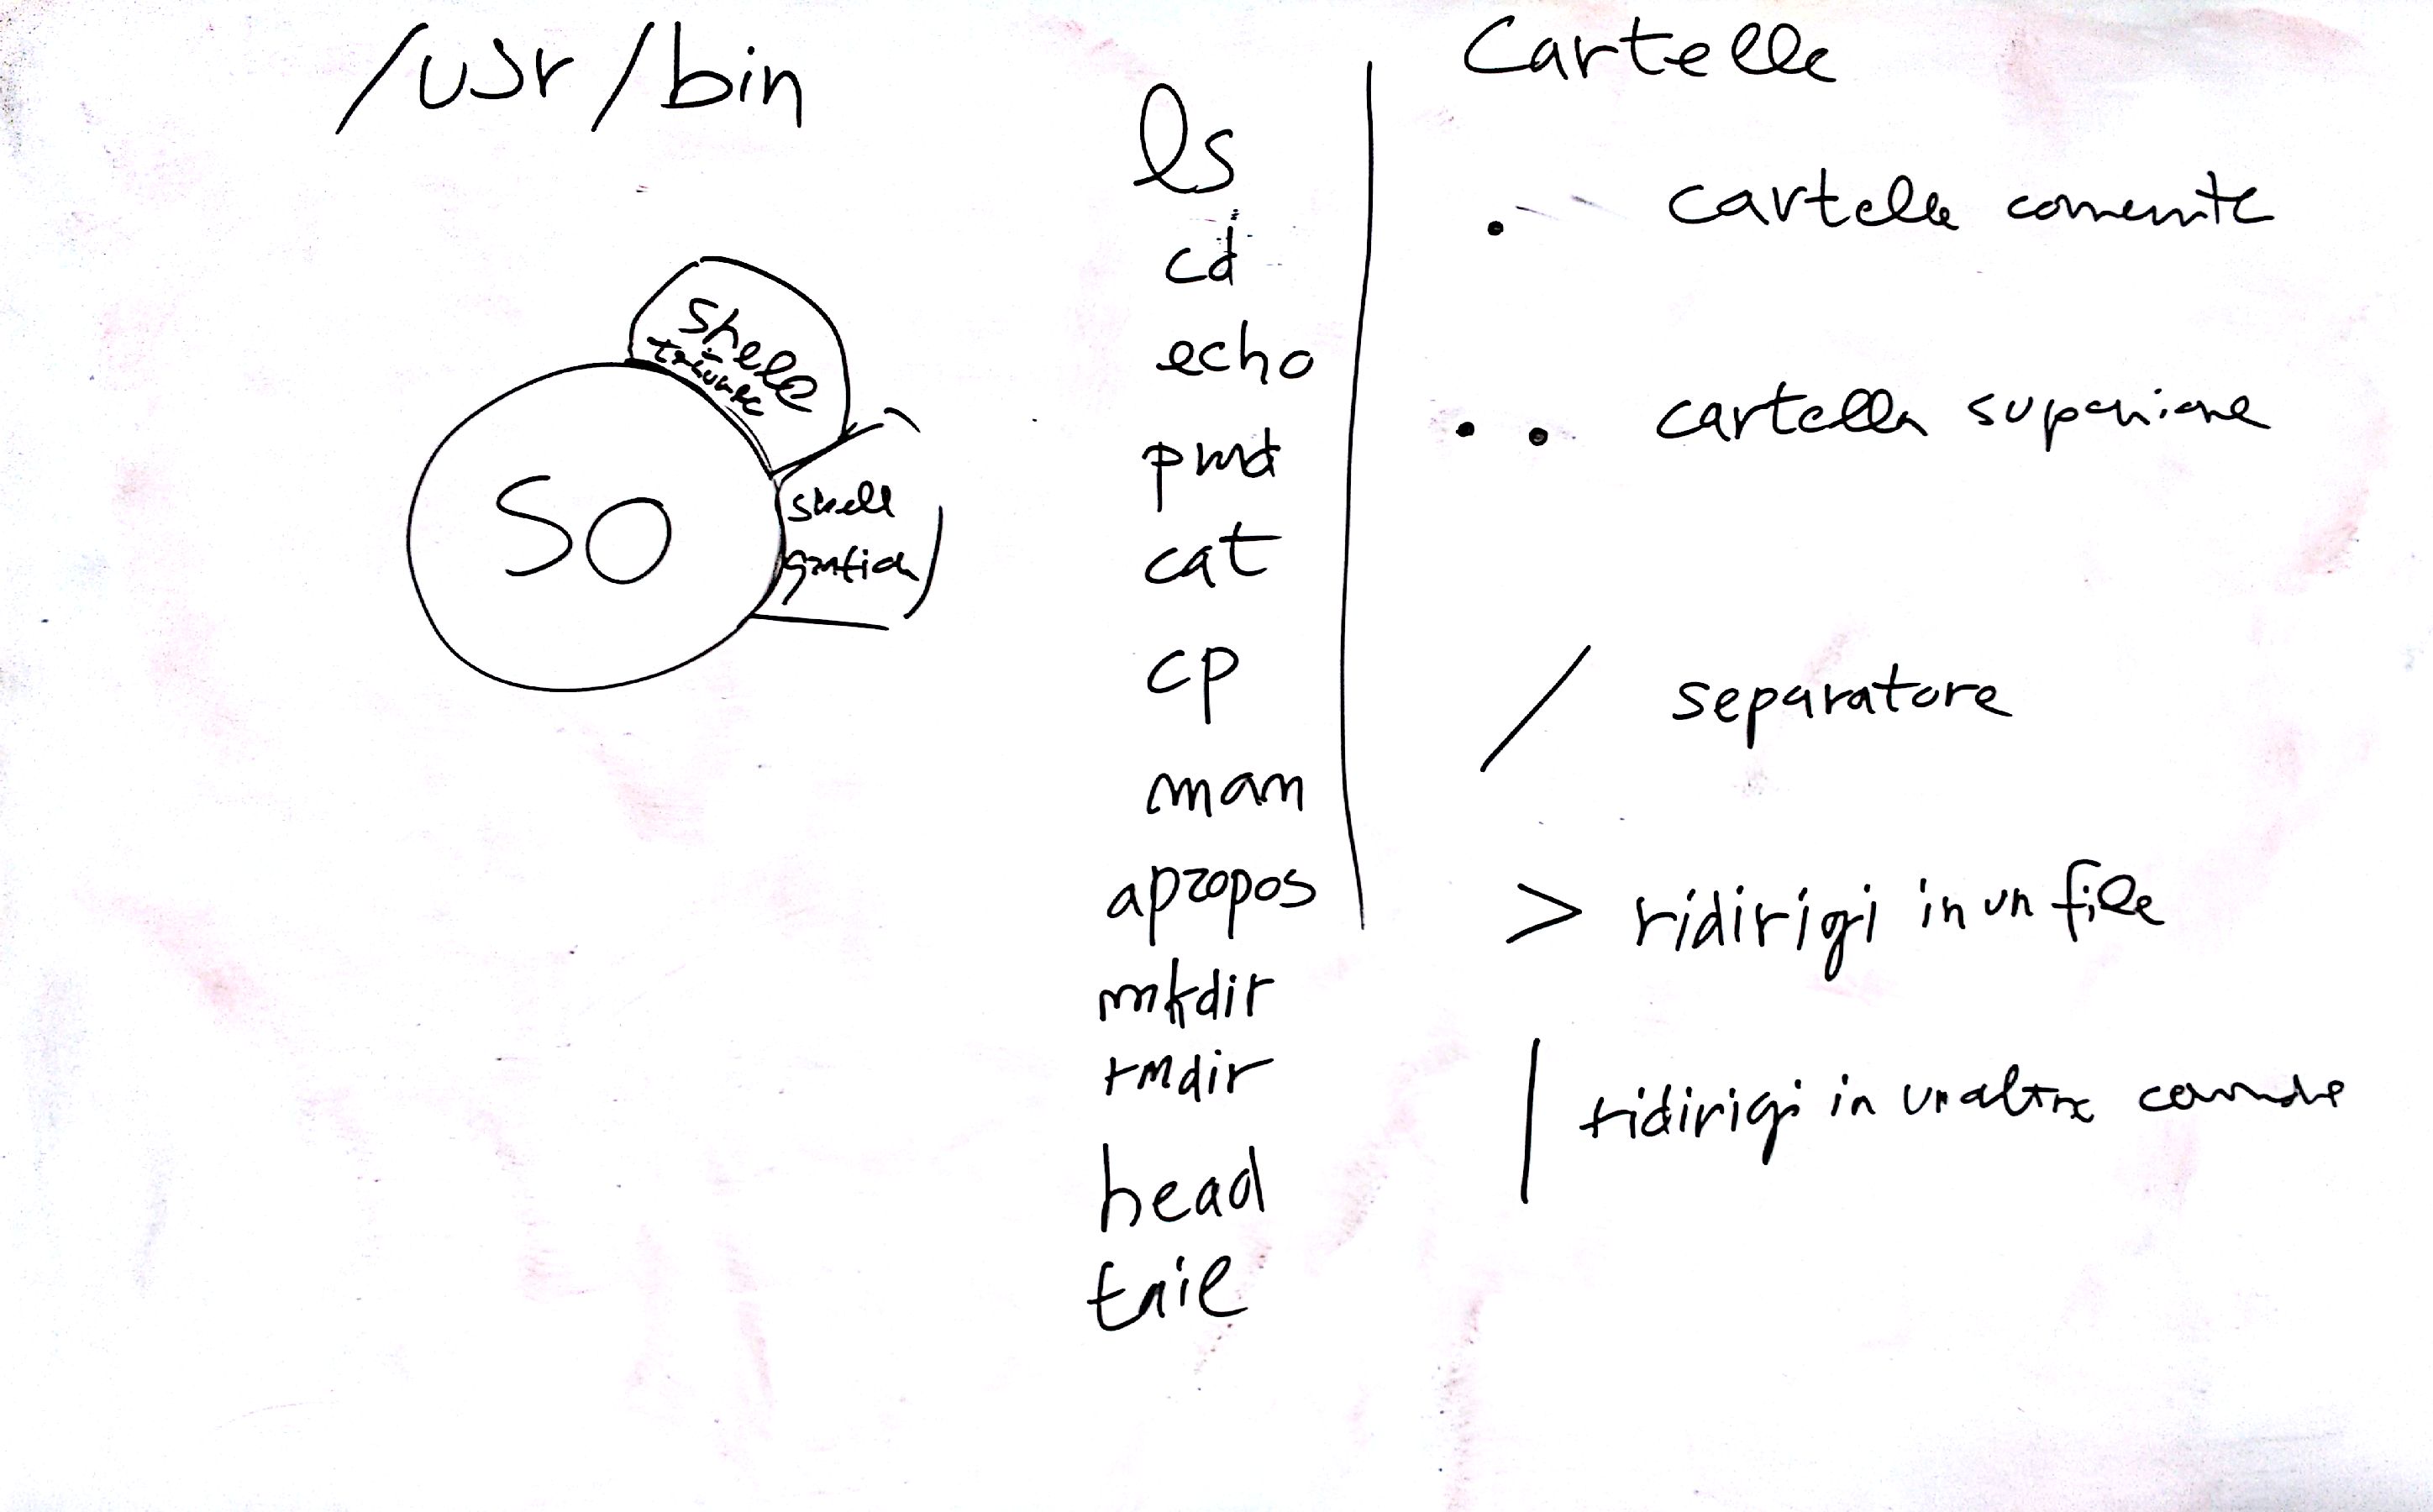 /usr/bin
shell
testuale
SO
shell
grafica
ls
cd
echo
pwd
cat
cp
man
apropos
mkdir
rmdir
head
tail
Cartelle
. cartella corrente
.. cartella superiore
/ separatore
> ridirigi in un file
| ridirigi in un altro comando